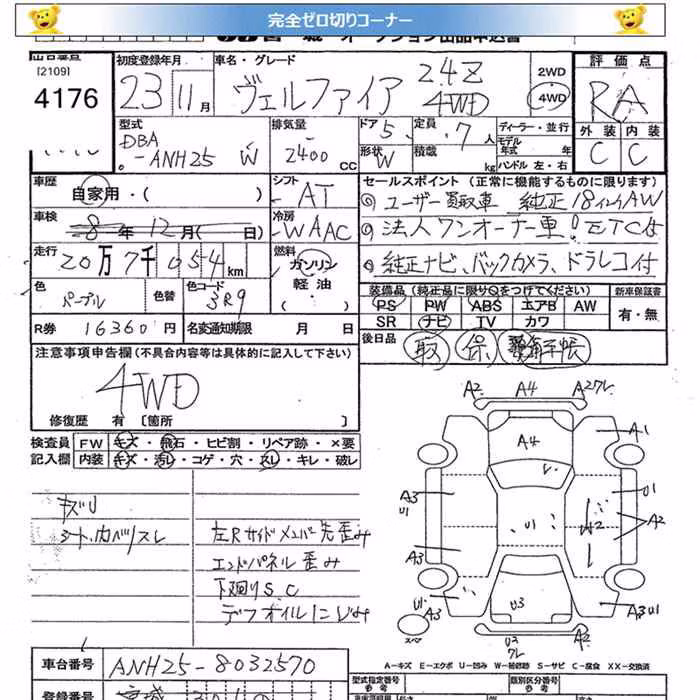 完全ゼロ切りコーナー
[2109]
4176
初度登録年月
23 11月
車名・グレード
ヴェルファイア 2.4Z 4WD
2WD
4WD
評価点
RA
外装 内装
C C
型式
DBA
-ANH25 W
排気量
2400 CC
ドア 5
形状 W
定員 7 人
積載 kg
ディーラー・並行
モデル年式 年
ハンドル 左・右
車歴
自家用・( )
シフト
AT
車検
8年12月( 日)
冷房
WAAC
走行
20万7千054km
燃料
ガソリン
軽油
( )
色
パープル
色替
色コード
3R9
R券 16360円
名変通知期限 月 日
セールスポイント (正常に機能するものに限ります)
◎ ユーザー買取車 純正18インチAW
◎ 法人ワンオーナー車!ETC付
◎ 純正ナビ、バックカメラ、ドラレコ付
装備品(純正品に限り○をつけてください)
PS PW ABS エアB AW
SR ナビ TV カワ
新車保証書
有・無
後日品
取 保 手帳
注意事項申告欄(不具合内容等は具体的に記入して下さい)
4WD
修復歴 有 [箇所 ]
検査員記入欄
FW キズ・飛石・ヒビ割・リペア跡・×要
内装 キズ・汚レ・コゲ・穴・スレ・キレ・破レ
キズU
シートカバー/スレ
左Rサイドメンバー先歪み
エンドパネル歪み
下廻りS.C
デフオイルにじみ
A2 A4 A2ワレ
A4
A1
A3
U1
U1
U1
A2
A2
A3
U1
A3
U3
A3U1
スペア
U3
ワレ
A2
A-キズ E-エクボ U-凹み W-補修跡 S-サビ C-腐食 XX-交換済
車台番号 ANH25-8032570
登録番号
型式指定番号
参考
類別区分番号
参考